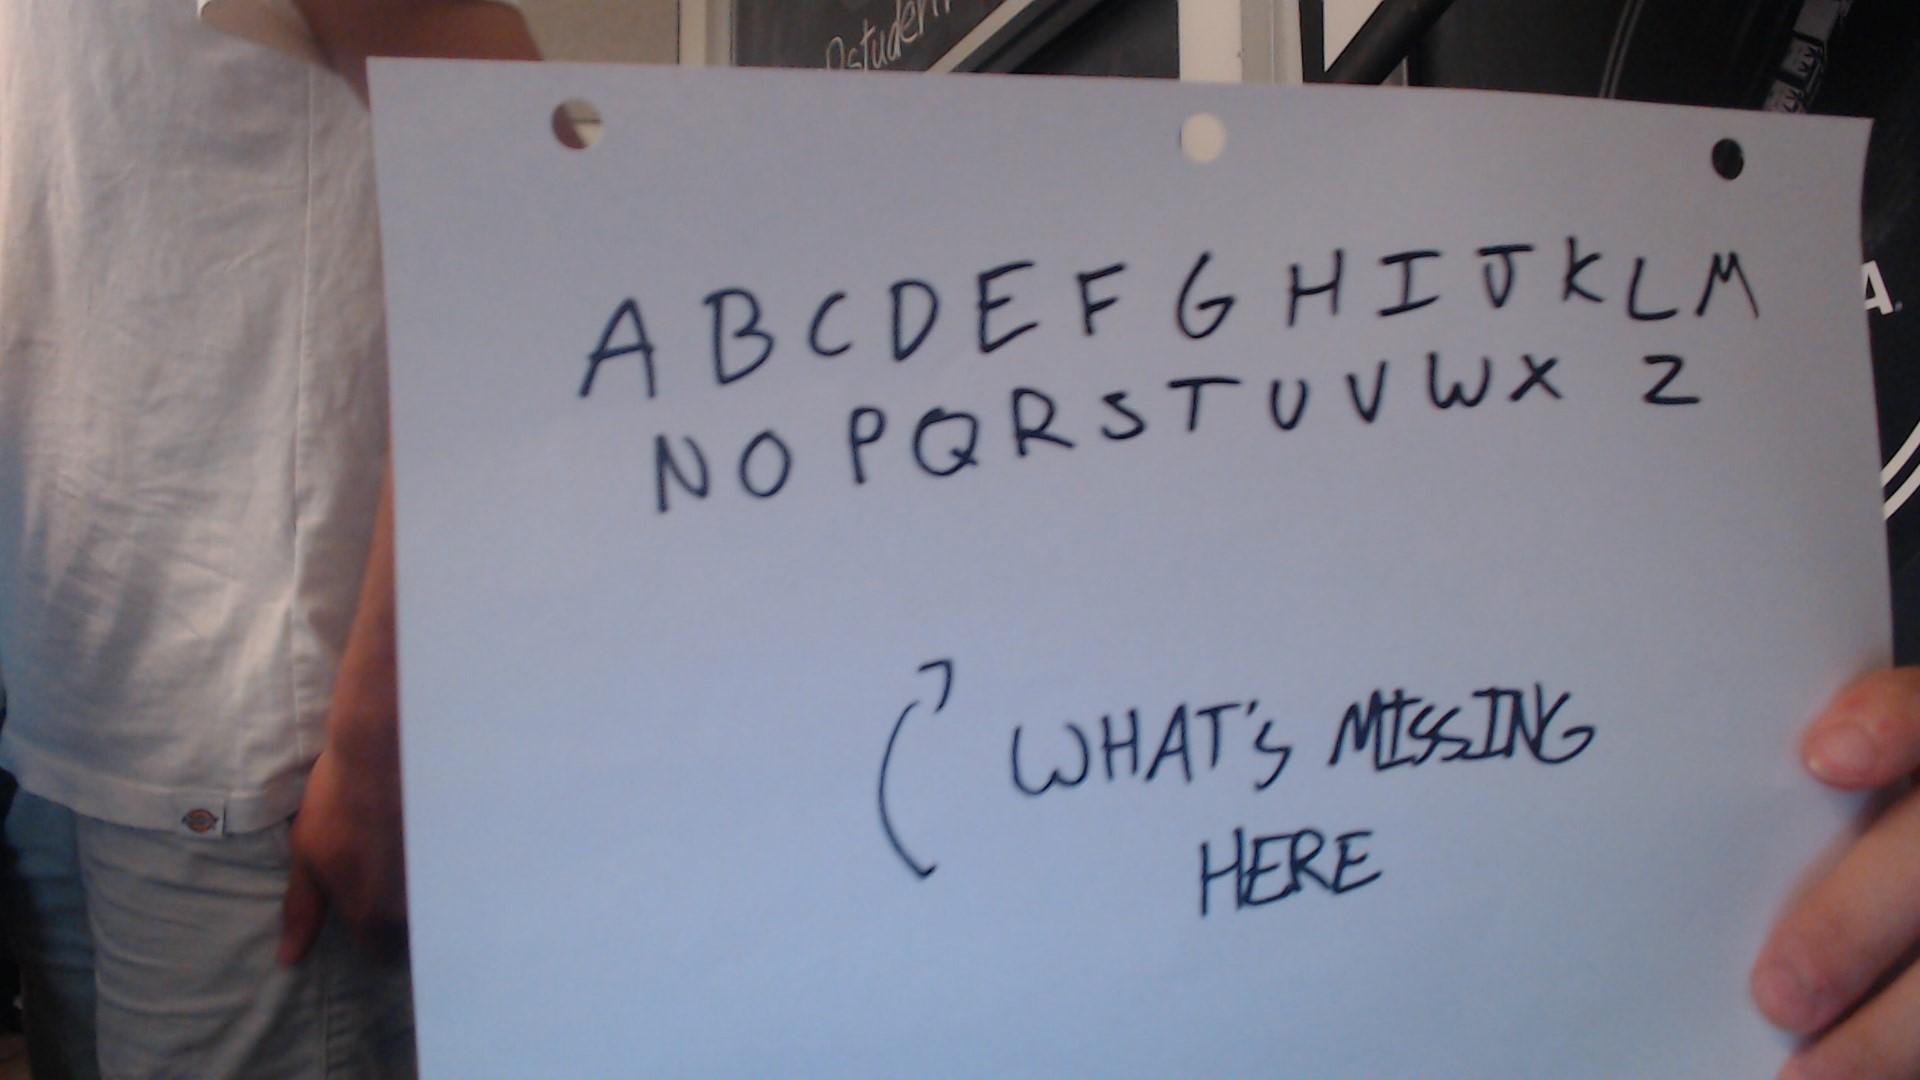 Pstudent
A B C D E F G H I J K L M
N O P Q R S T U V W X Z
WHAT'S MISSING
HERE